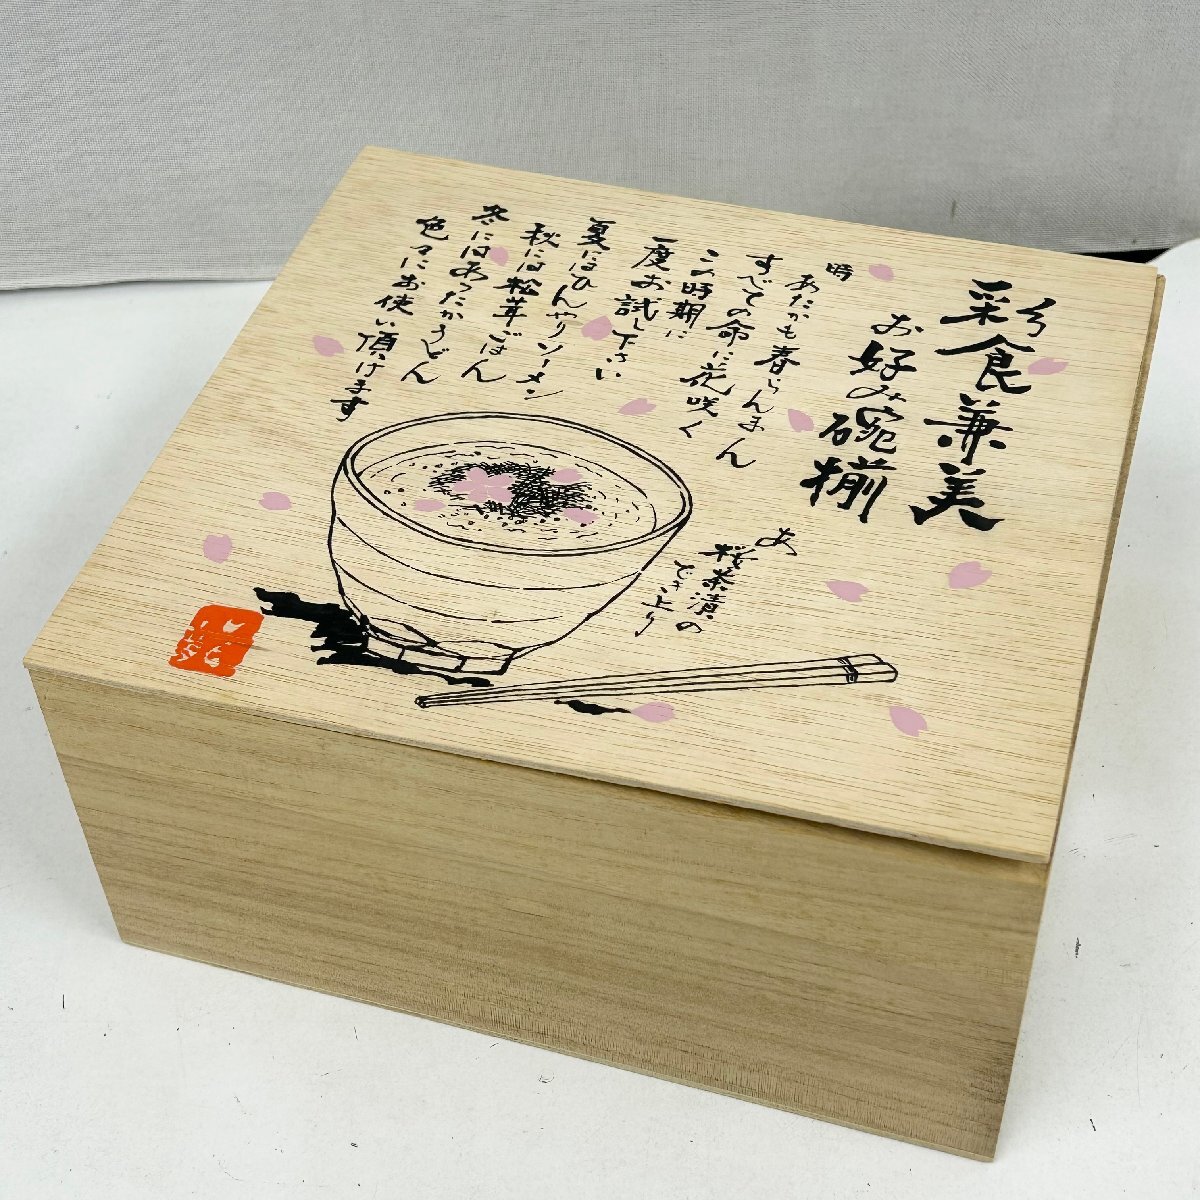 彩食兼美
お好み碗揃
時
あたかも春らんまん
すべての命に花咲く
この時期に
一度お試し下さい
夏にはひんやりソーメン
秋には松茸ごはん
冬にはあったかうどん
色々にお使い頂けます
あ
桜茶漬の
でき上り